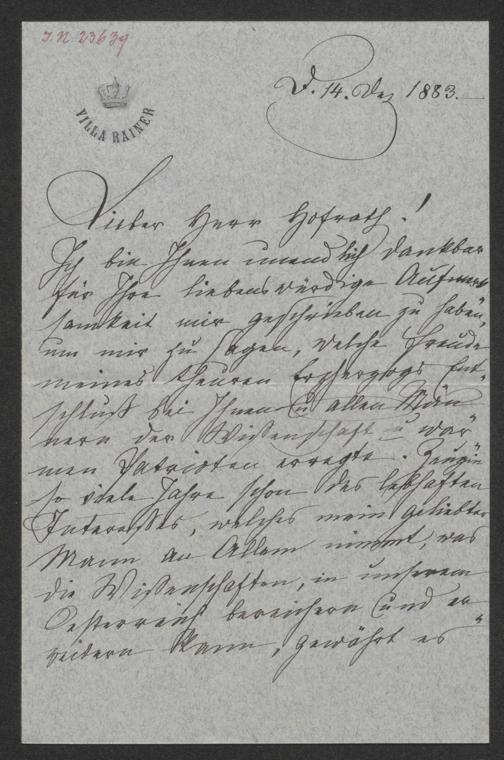 J.N 23639
VILLA RAINER
D. 14. Dez 1883.
Lieber Herr Hofrath!
Ich bin Ihnen unendlich dankbar
für Ihre liebenswürdige Aufmerk
samkeit mir geschrieben zu haben,
um mir zu sagen, welche Freude
meines theuren Erzherzogs Ent-
schluß bei Ihnen u allen Män
nern der Wissenschaft u war
men Patrioten erregte. Zeugin
so viele Jahre schon des lebhaften
Interesses, welches mein geliebter
Mann an Allem nimmt, was
die Wissenschaften, in unserem
Oesterreich bereichern und er
weitern kann, gewährt es